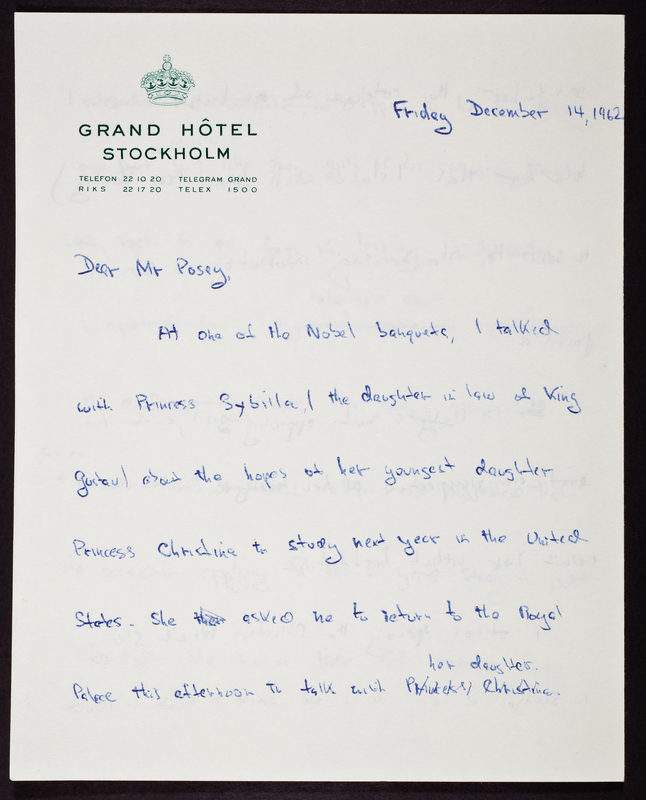 GRAND HÔTEL
STOCKHOLM
TELEFON 22 10 20 TELEGRAM GRAND
RIKS 22 17 20 TELEX 1500
Friday December 14, 1962
Dear Mr Posey,
At one of the Nobel banquets, I talked
with Princess Sybilla, / the daughter in law of King
Gustav / about the hopes of her youngest daughter
Princess Christina to study next year in the United
States. She asked me to return to the Royal
her daughter.
Palace this afternoon to talk with Princess Christina.